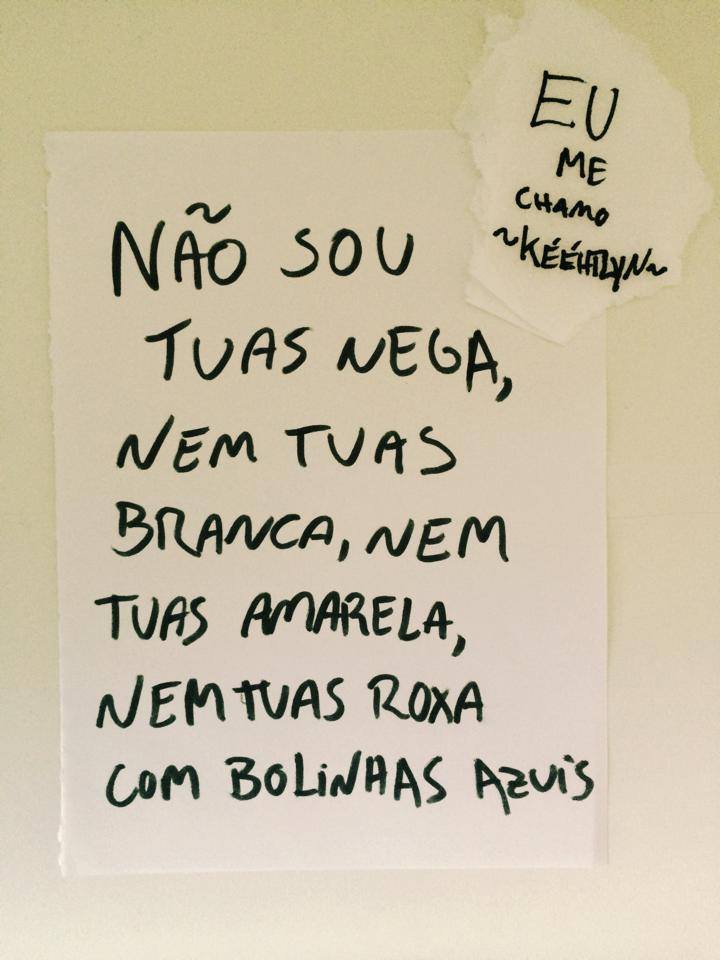 EU
ME
CHAMO
~KÉÉHTLYN~
NÃO SOU
TUAS NEGA,
NEM TUAS
BRANCA, NEM
TUAS AMARELA,
NEM TUAS ROXA
COM BOLINHAS AZUIS